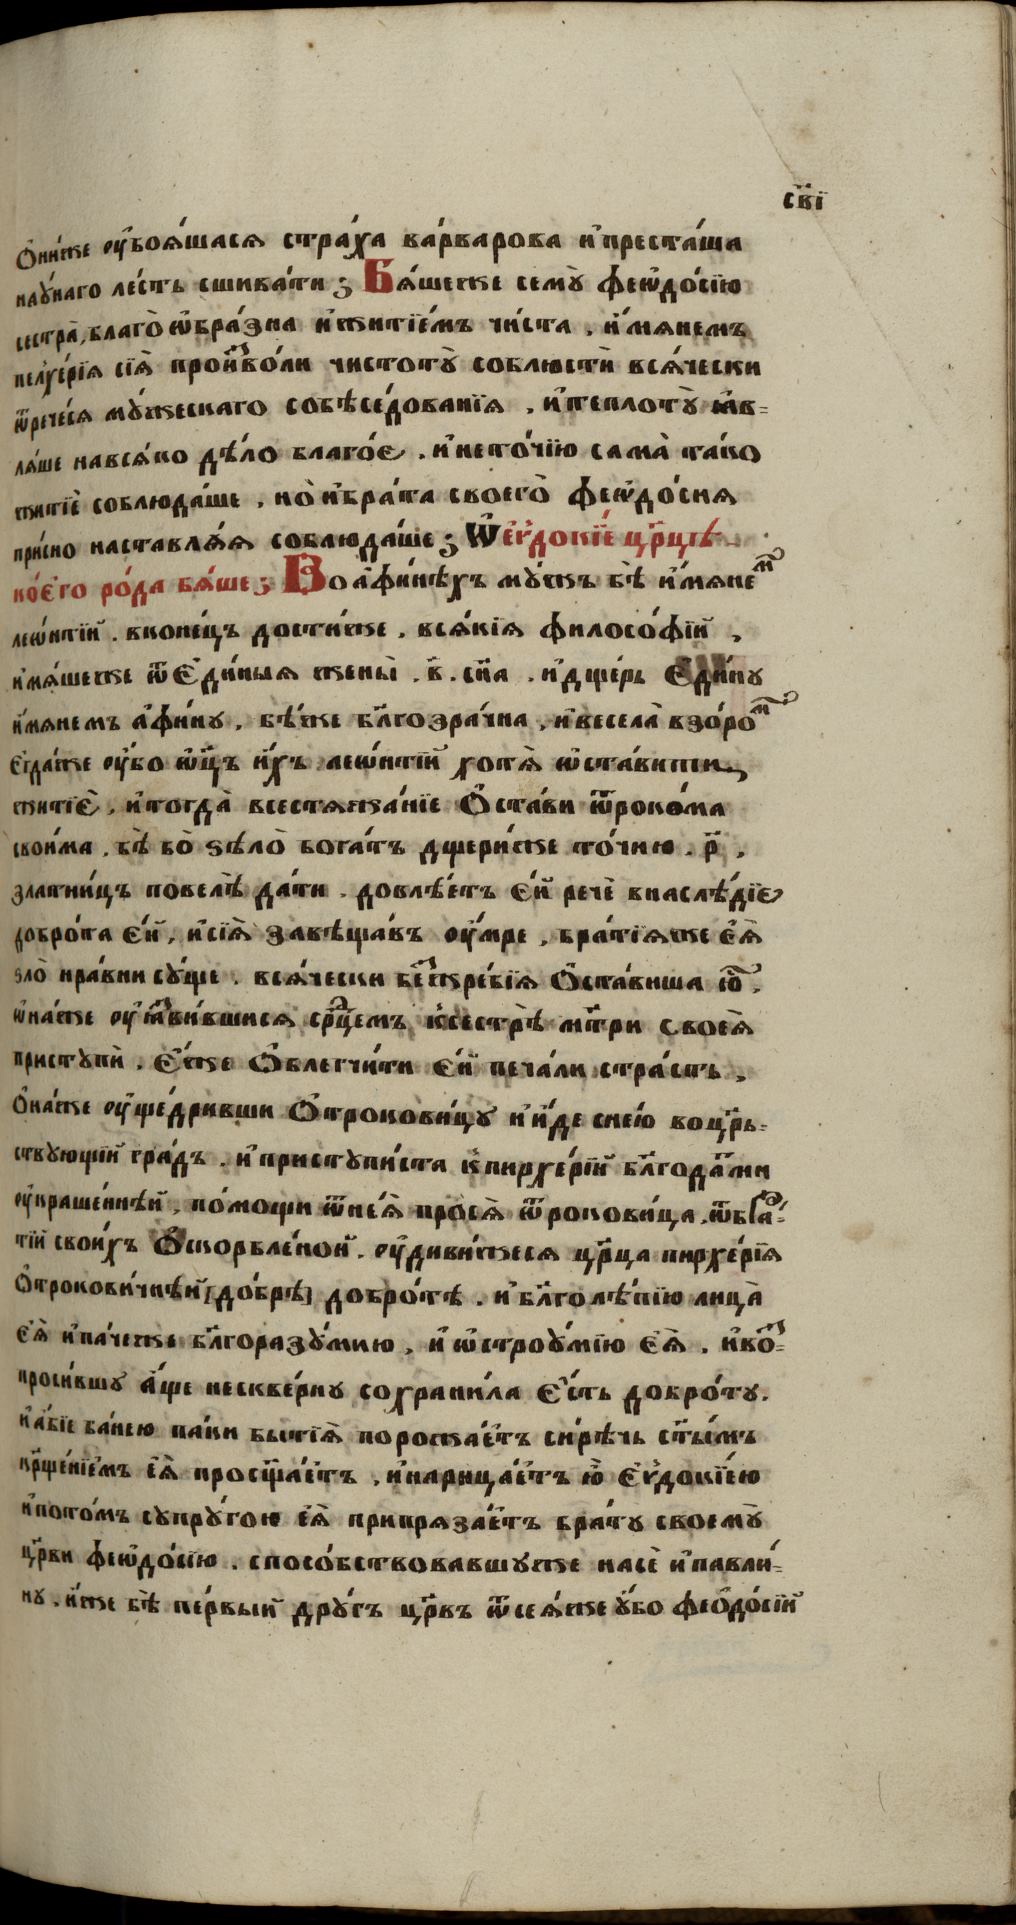 св҃і
ѻ҆ни́же ᲂу҆боѧ́шасѧ стра́ха ва́рварова и҆преста́ша
нау́наго ле́сть сшива́ти ; Бѧ́шеже семꙋ̀ феѡдо́сїю
сестра̀, благоѡ҆бра́зна и҆житїе́мъ чи́ста , и҆́мѧнемъ
пелхе́рїѧ сїѧ̀ произво́ли чистотꙋ̀ соблюстѝ всѧ́чески
ѿрече́сѧ мꙋ́жескаго собѣсе́дованїѧ , и҆теплотꙋ̀ ꙗ҆в-
лѧ́ше навсѧ́ко дѣ́ло благо́є . и҆нето́чїю сама̀ та́ко
житїѐ соблюда́ше , но̀ и҆бра́та своего̀ феѡдо́сиѧ
при́сно наставлѧ́ѧ соблюда́ше ; Ѡ҆єѵдокі́е цр҃цѣ
ко́єго ро́да бѧ́ше ; Во аѳи́нѣхъ мꙋ́жъ бѣ̀ и҆́мѧнем
леѡ́нтїй . вконе́цъ дости́же , всѧ́кїѧ филосо́фїй ,
и҆мѧ́шеже ѿє҆ди́ныѧ жены̀ . в҃ . сн҃а . и҆дще́рь є҆ди́нꙋ
и҆́мѧнемъ а҆фи́нꙋ , бѣ́же бл҃гозра́чна , и҆весела̀ взо́ром
є҆гда́же ᲂу҆́бо ѻц҃ъ и҆́хъ леѡ́нтїй хотѧ̀ ѡ҆ста́вити
житїѐ , и҆тогда̀ всестѧжа́нїе ѻ҆ста́ви ѿроко́ма
свои́ма . бѣ̀ бо̀ ѕѣло̀ бога́тъ дщери́же то́чию . р҃ ,
злати́цъ повелѣ̀ да́ти . довлѣ́етъ є҆́й речѐ внаслѣ́дїе
добро́та є҆́й , и҆сїѧ̀ завѣща́въ ᲂу҆́мре , бра́тїѧже є҆ѧ̀
зло̀ нра́вни сꙋ́ще . всѧ́чески беж҆ре́бїѧ ѻ҆ста́виша ю҆̀ ,
ѡ҆на́же ᲂу҆ꙗзви́вшисѧ ср҃цемъ к҆сестрѣ̀ мт҃ри своеѧ̀
пристꙋпѝ . є҆́же ѻ҆блегчи́ти є҆́й печа́ли стра́сть ,
ѻ҆на́же ᲂу҆ще́дривши ѻ҆трокови́цꙋ и҆и҆́де снею́ воцр҃ь-
ствꙋющїй гра́дъ . и҆пристꙋпи́ста к҆пирхе́рїй бл҃года́тми
ᲂу҆краше́ннѣй , по́мощи ѿнеѧ̀ просѧ̀ ѿрокови́ца . ѿбра́-
тїй свои́хъ ѻ҆скорбле́ной . ᲂу҆диви́жесѧ цр҃ца пирхе́рїѧ
ѻ҆трокови́чнѣй [до́брѣ] добро́тѣ . и҆ бл҃голѣ́пїю лица̀
є҆ѧ̀ и҆па́чеже бл҃горазꙋ́мию , и҆ ѡ҆строꙋ́мїю є҆ѧ̀ . и҆во-
проси́вшꙋ а҆́ще нескве́рнꙋ сохрани́ла є҆́сть добро́тꙋ .
и҆а́бїе ба́нею па́ки бытїѧ̀ порожа́етъ си́рѣчь ст҃ы́мъ
кр҃ще́нїемъ є҆ѧ̀ просвѣща́етъ , и҆нарица́етъ ю҆̀ є҆ѵдокі́ею
и҆пото́мъ сꙋпрꙋ́гою є҆ѧ̀ припрѧза́етъ бра́тꙋ своемꙋ̀
цр҃ви феѡдо́сїю . спосо́бствовавшꙋже насѐ и҆павли́-
нꙋ . и҆́же бѣ̀ пе́рвый дрꙋ́гъ цр҃въ ѿсеѧ́же ᲂу҆́бо феѻдо́сїй